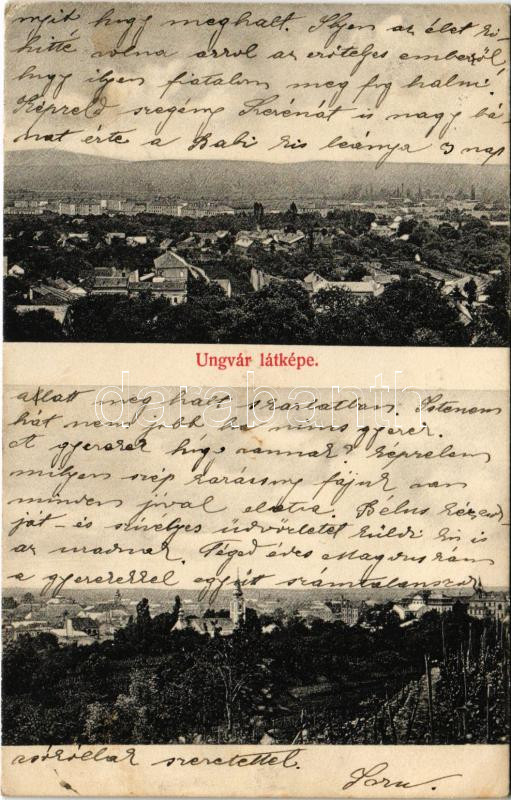 nyit hogy meghalt. Ilyen az élet ki
hitte volna arrol az erőteljes emberről,
hogy ilyen fiatalon meg fog halni.
Képzeld szegény Szerénát is nagy bá-
nat érte a Babi kis leánya 3 nap
Ungvár látképe.
darabanth
allatt meg halt skarlatban. Istenem
hát nem jobb ha nincs gyerek.
A gyerekek hogy vannak? képzelem
milyen szép karácsony fájuk van
minden jóval elatva. Bélus kezed
ját - és szívélyes üdvözletet küldi én is
az uradnak. Téged édes Magduskám
a gyerekekkel együtt számtalanszor
csókollak szeretettel.